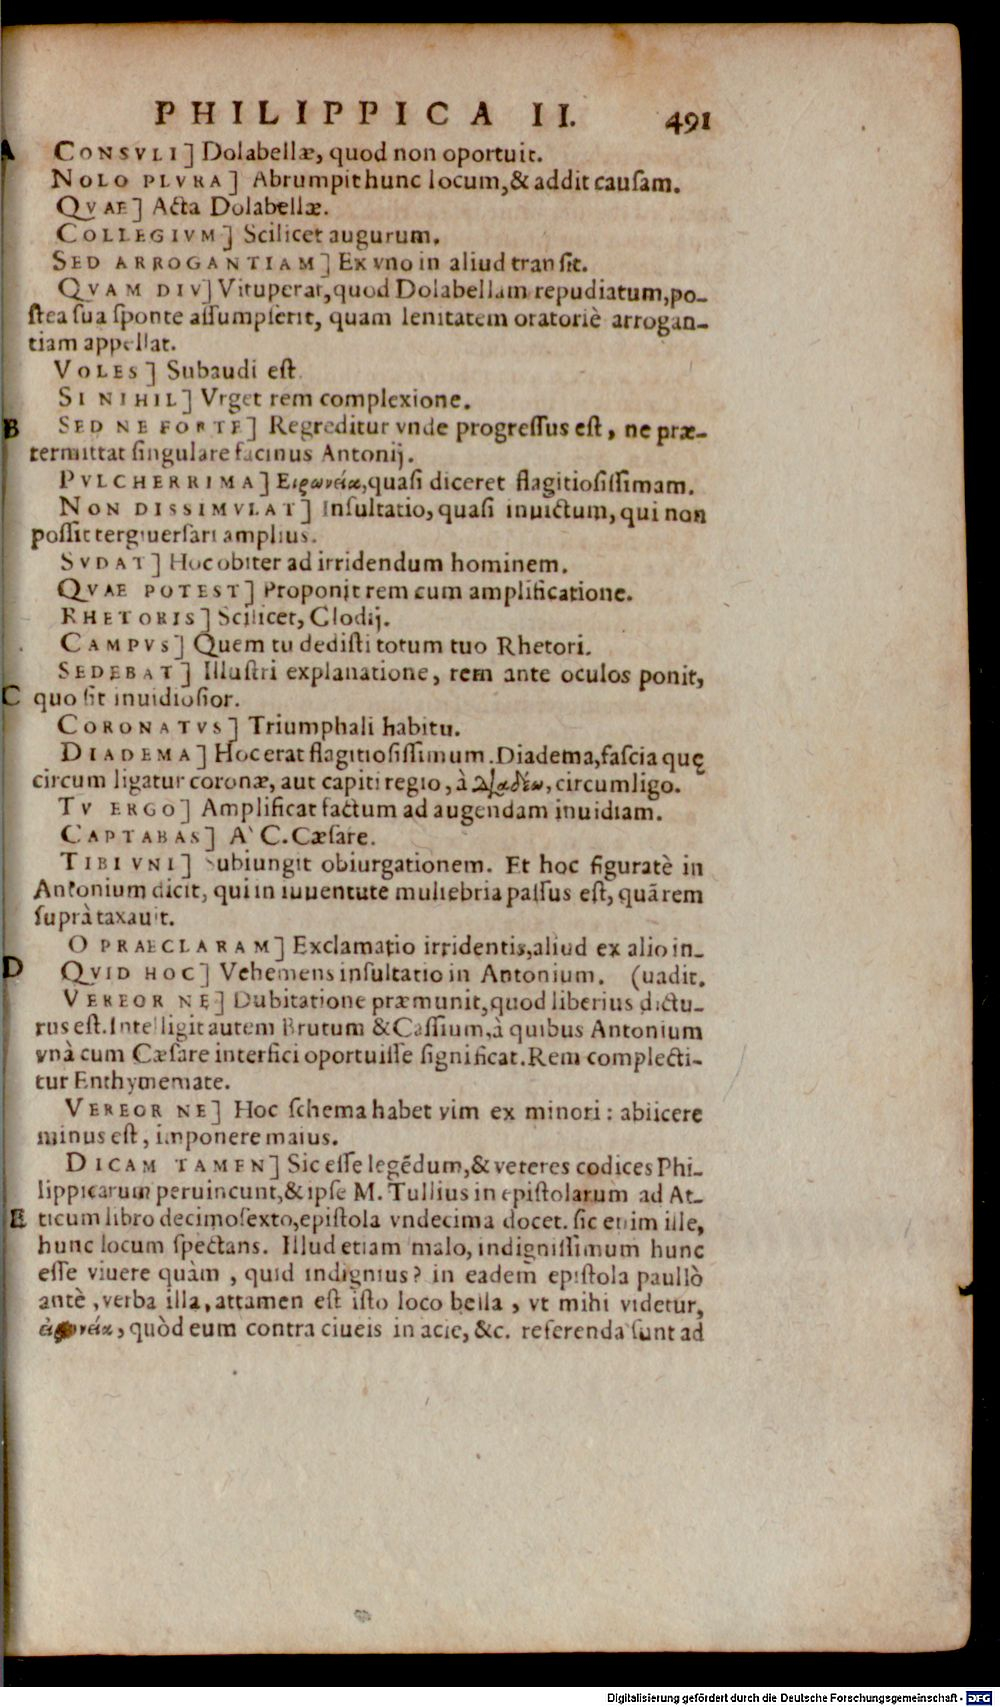 PHILIPPICA II. 491
A CONSVLI] Dolabellæ, quod non oportuit.
NOLO PLVRA] Abrumpit hunc locum, & addit causam.
QVAE] Acta Dolabellæ.
COLLEGIVM] Scilicet augurum.
SED ARROGANTIAM] Ex vno in aliud transit.
QVAM DIV] Vituperat, quod Dolabellam repudiatum, po-
stea sua sponte assumpserit, quam lenitatem oratoriè arrogan-
tiam appellat.
VOLES] Subaudi est
SI NIHIL] Vrget rem complexione.
B SED NE FORTE] Regreditur vnde progressus est, ne præ-
termittat singulare facinus Antonij.
PVLCHERRIMA] Ειρωνεία, quasi diceret flagitiosissimam.
NON DISSIMVLAT] Insultatio, quasi inuictum, qui non
possit tergiuersari amplius.
SVDAT] Hoc obiter ad irridendum hominem.
QVAE POTEST] Proponit rem cum amplificatione.
RHETORIS] Scilicet, Clodij.
CAMPVS] Quem tu dedisti totum tuo Rhetori.
SEDEBAT] Illustri explanatione, rem ante oculos ponit,
C quo sit inuidiosior.
CORONATVS] Triumphali habitu.
DIADEMA] Hoc erat flagitiosissimum. Diadema, fascia quę
circum ligatur coronæ, aut capiti regio, à διαδέω, circumligo.
TV ERGO] Amplificat factum ad augendam inuidiam.
CAPTABAS] A' C. Cæsare.
TIBI VNI] Subiungit obiurgationem. Et hoc figuratè in
Antonium dicit, qui in iuuentute muliebria passus est, quã rem
suprà taxauit.
O PRAECLARAM] Exclamatio irridentis, aliud ex alio in-
D QVID HOC] Vehemens insultatio in Antonium. (uadit.
VEREOR NE] Dubitatione præmunit, quod liberius dictu-
rus est. Intelligit autem Brutum & Cassium, à quibus Antonium
vnà cum Cæsare interfici oportuisse significat. Rem complecti-
tur Enthymemate.
VEREOR NE] Hoc schema habet vim ex minori: abiicere
minus est, imponere maius.
DICAM TAMEN] Sic esse legẽdum, & veteres codices Phi-
lippicarum peruincunt, & ipse M. Tullius in epistolarum ad At-
E ticum libro decimosexto, epistola vndecima docet. sic enim ille,
hunc locum spectans. Illud etiam malo, indignissimum hunc
esse viuere quàm, quid indignius? in eadem epistola paullò
antè, verba illa, attamen est isto loco bella, vt mihi videtur,
quòd eum contra ciueis in acie, &c. referenda sunt ad
Digitalisierung gefördert durch die Deutsche Forschungsgemeinschaft - DFG